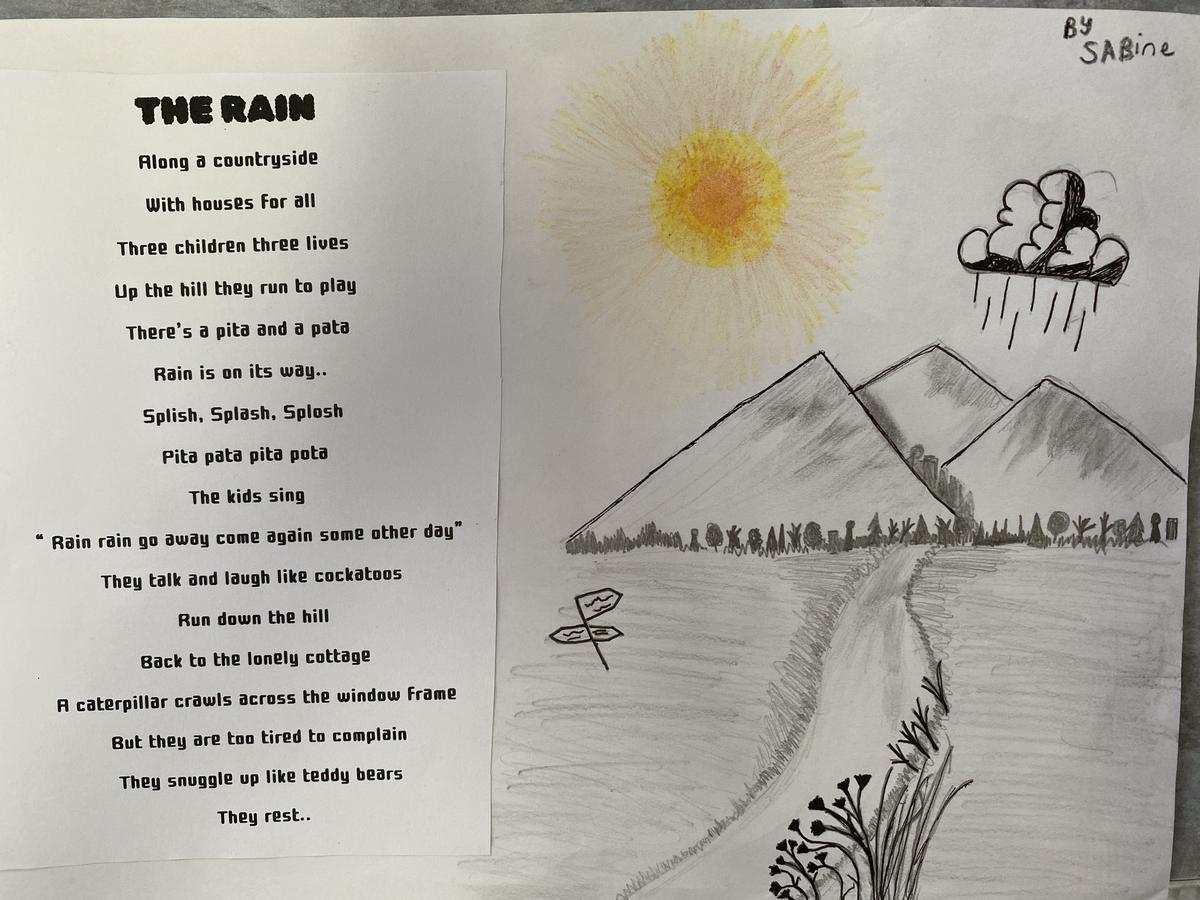 BY
SABine
THE RAIN
Along a countryside
With houses for all
Three children three lives
Up the hill they run to play
There's a pita and a pata
Rain is on its way..
Splish, Splash, Splosh
Pita pata pita pota
The kids sing
“ Rain rain go away come again some other day”
They talk and laugh like cockatoos
Run down the hill
Back to the lonely cottage
A caterpillar crawls across the window frame
But they are too tired to complain
They snuggle up like teddy bears
They rest..